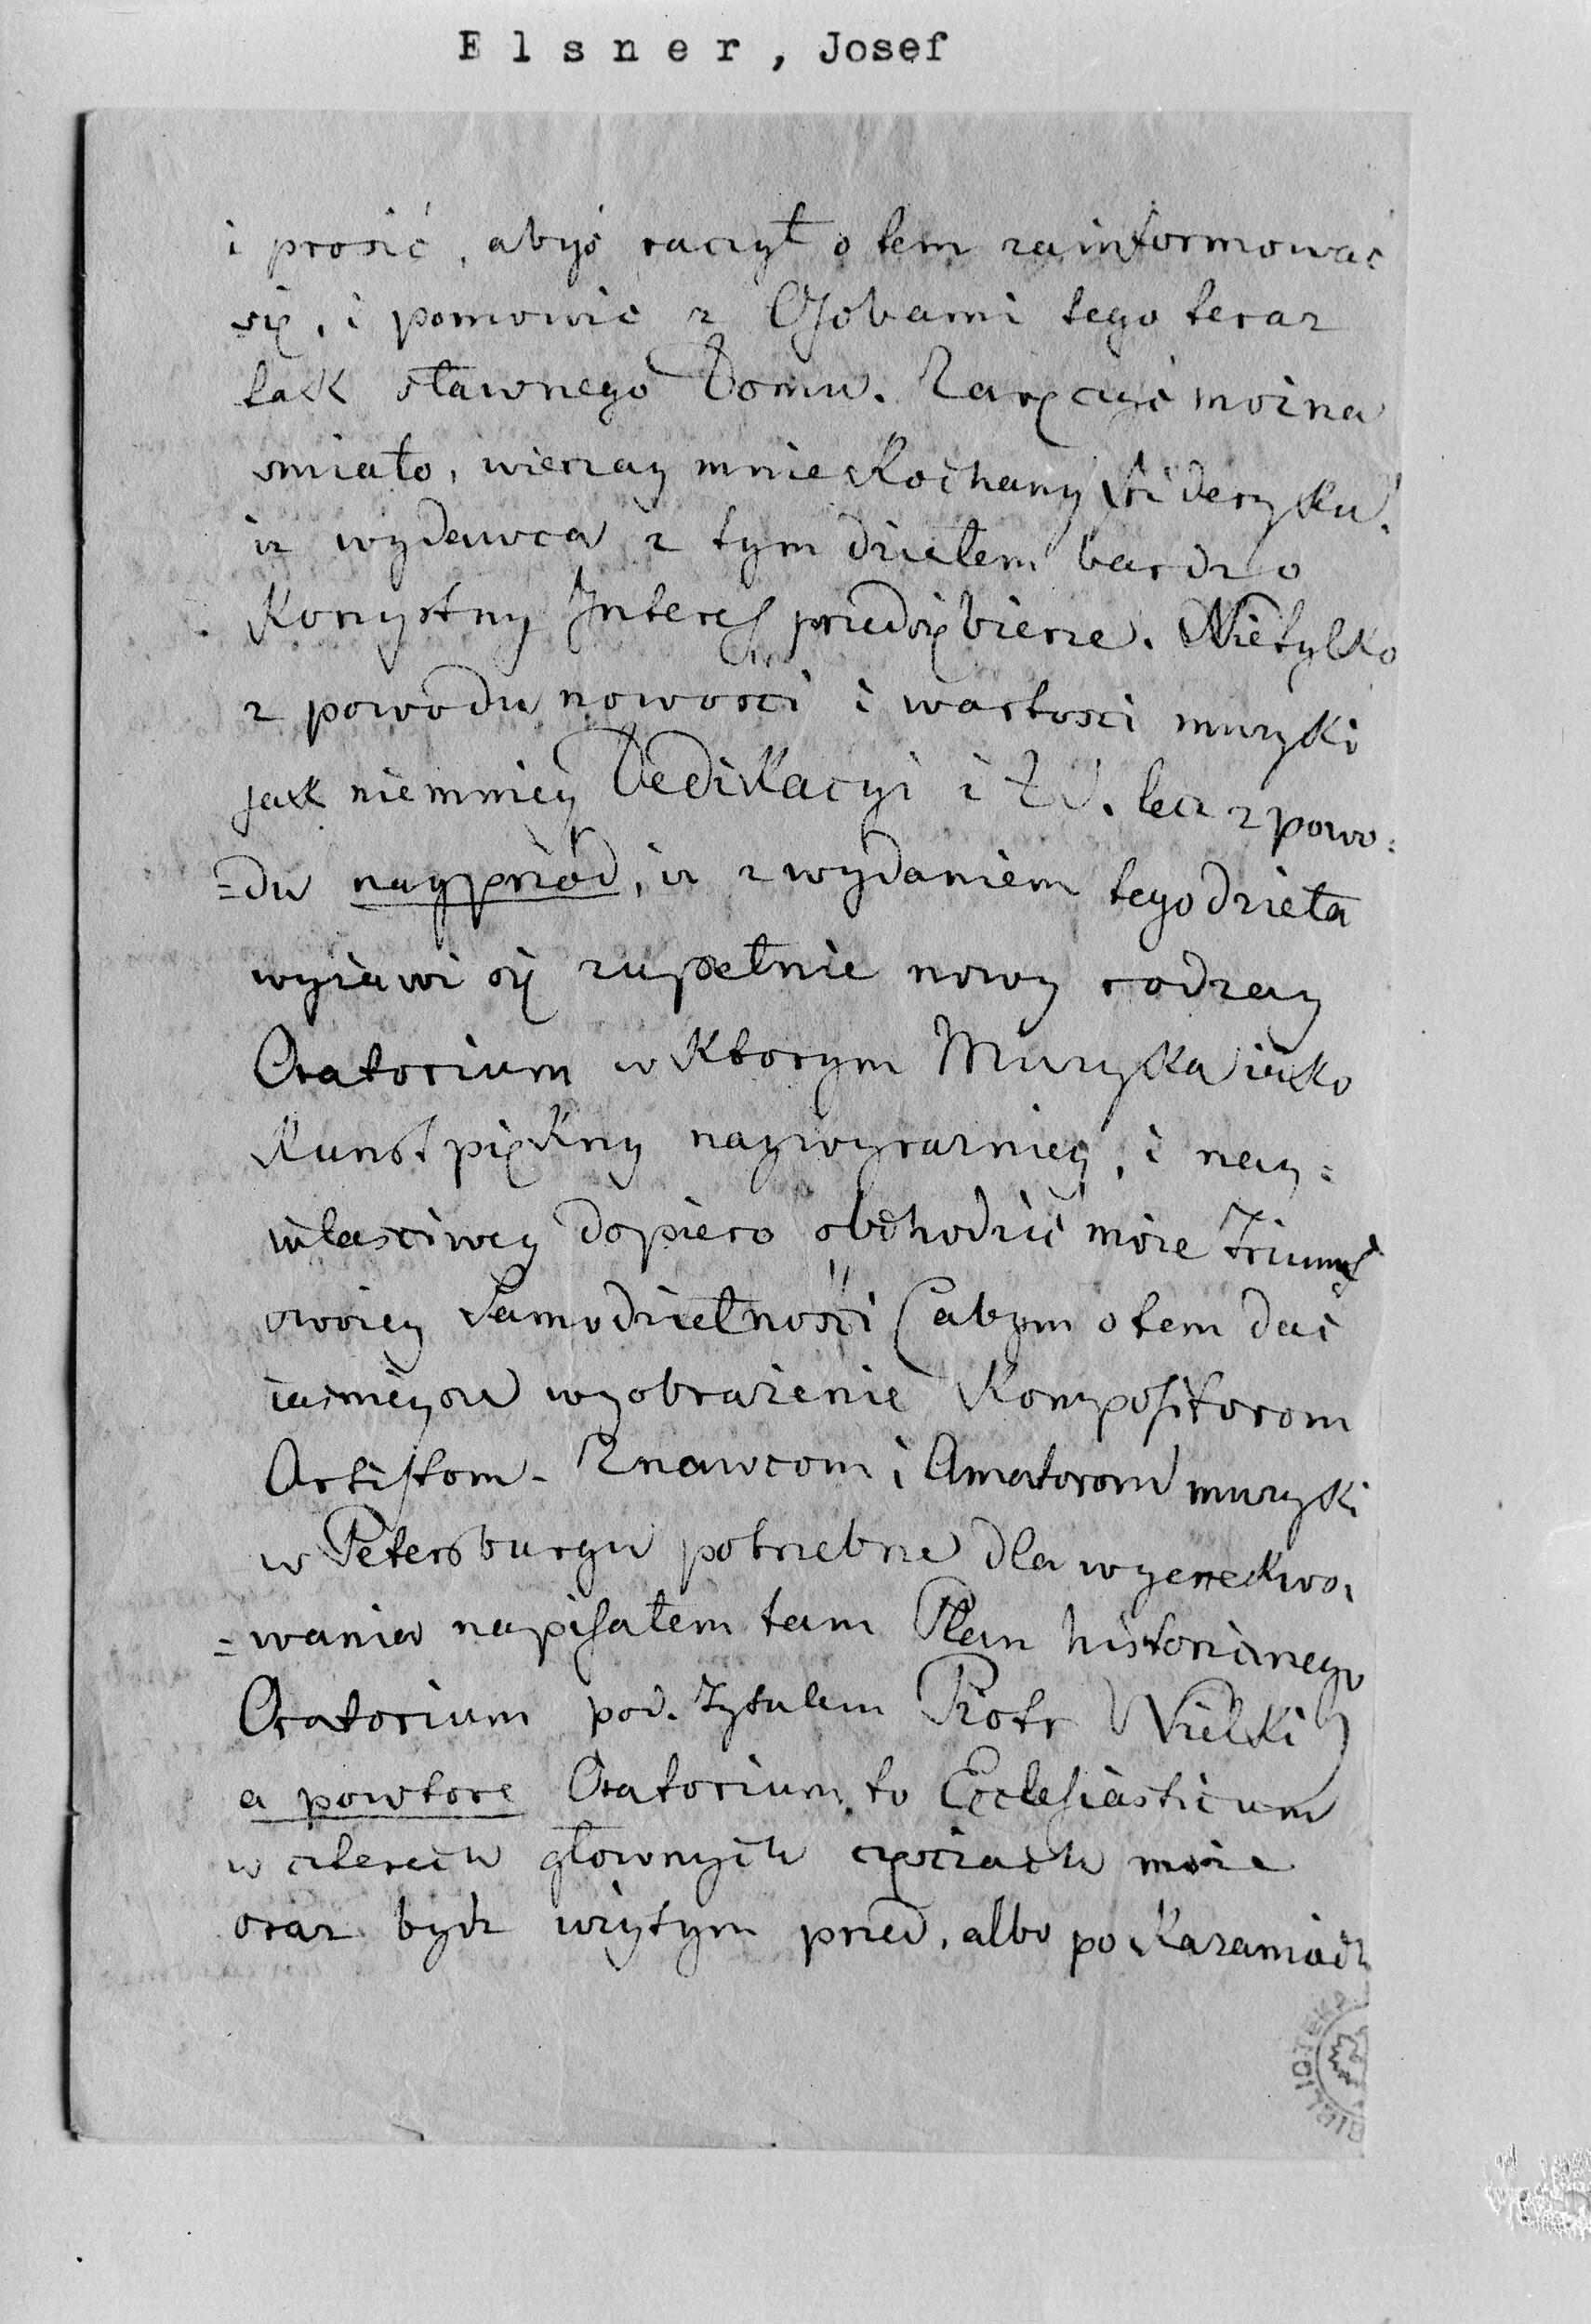 Elsner, Josef
i prosić, abyś raczył o tem zainformować
się, i pomowić z Osobami tego teraz
tak sławnego Domu. Zaręczyć można
smiało, wierzay mnie Kochany Frideryku!
iż wydawca z tym dziełem bardzo
Korzystny Interes przedsiębierze. Nietylko
z powodu nowości i wartosci muzyki
jak niemniey Dedikacyi i t.d. lecz z powo:
=du nayprzód, iż z wydaniem tego dzieła
wyiawi się zupełnie nowy rodzay
Oratorium w Ktorym Muzyka iako
Kunst piękny naywyrazniey, i nay:
właściwey dopiero obchodzić może Triumf
swoiey Samodzielności (abym o tem dać
iasnieysze wyobrażenie Kompositorom
Artistom - Znawcom i Amatorom muzyki
w Petersburgu potrzebne dla wyexekwo,
=wania napisałem tam Plan historicznego
Oratorium pod. tytułem Piotr Wielki)
a powtore Oratorium to Ecclesiasticum
w czterech głownych częściach może
oraz bydz użytym przed, albo po Kazaniach
BIBLIOTEKA